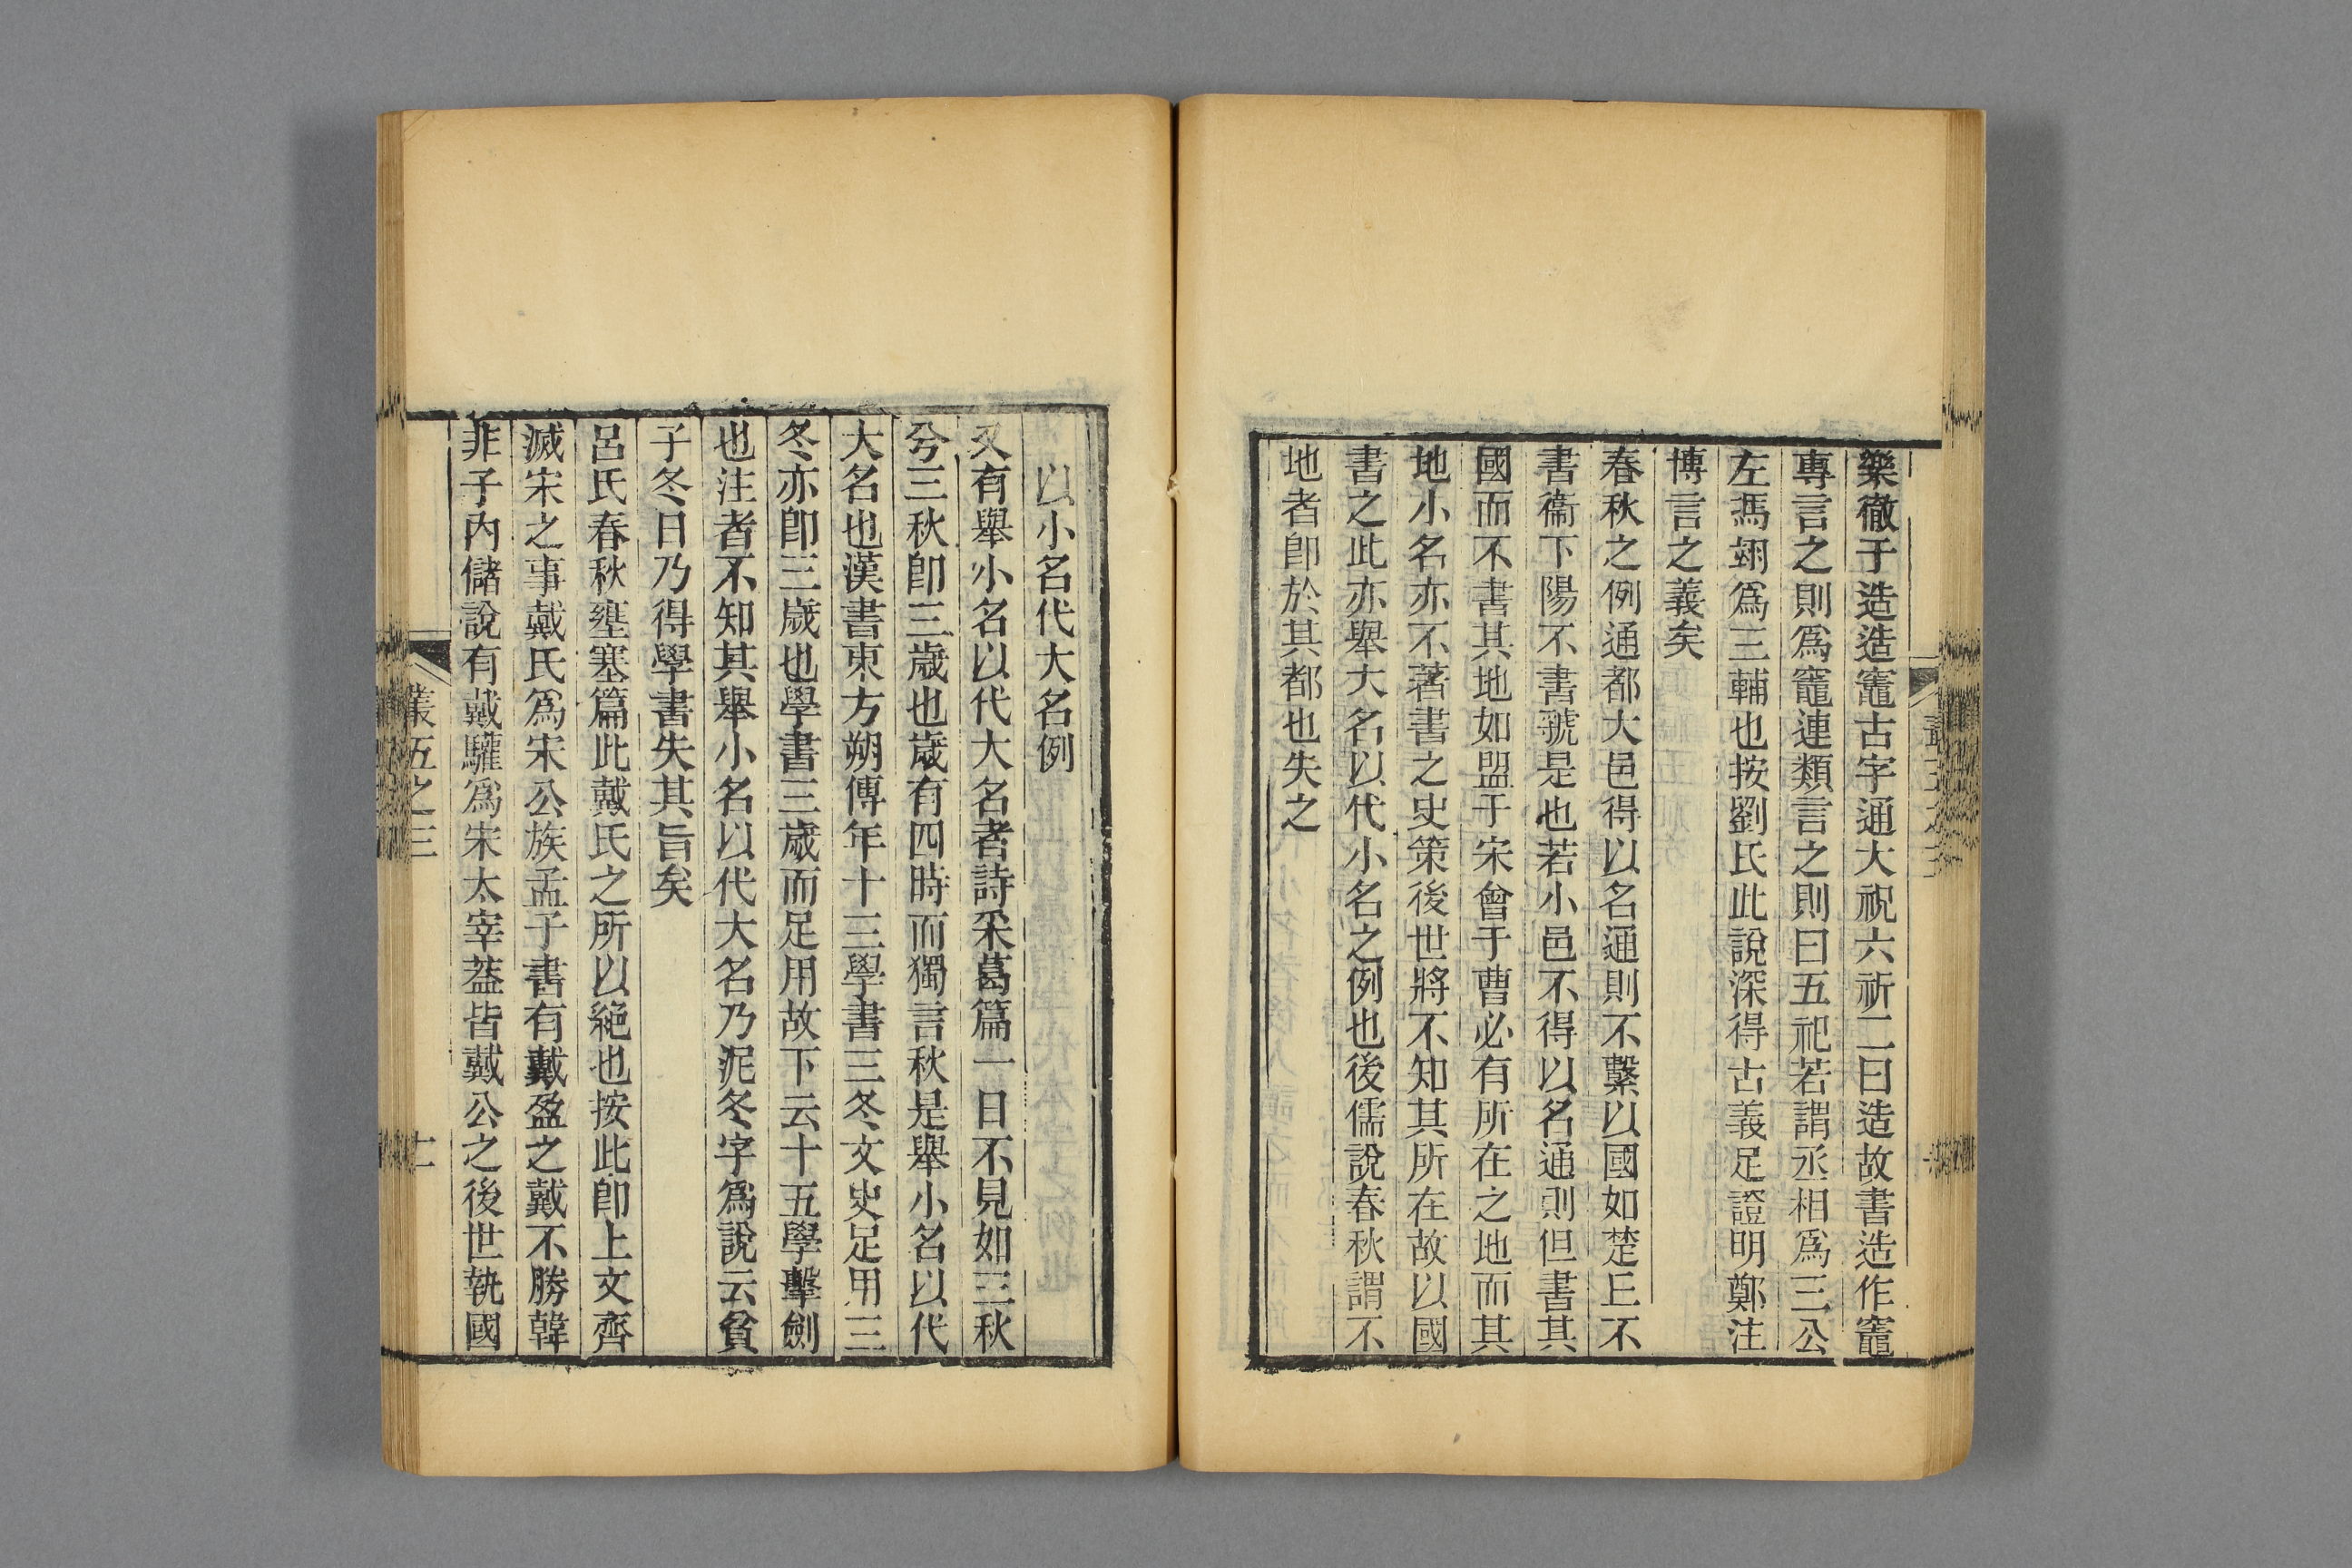 樂徹于造造竈古字通大祝六祈二曰造故書造作竈
專言之則爲竈連類言之則曰五祀若謂丞相爲三公
左馮翊爲三輔也按劉氏此說深得古義足證明鄭注
博言之義矣
春秋之例通都大邑得以名通則不繫以國如楚丘不
書衞下陽不書虢是也若小邑不得以名通則但書其
國而不書其地如盟于宋會于曹必有所在之地而其
地小名亦不著書之史策後世將不知其所在故以國
書之此亦舉大名以代小名之例也後儒說春秋謂不
地者卽於其都也失之
以小名代大名例
又有舉小名以代大名者詩采葛篇一日不見如三秋
兮三秋卽三歲也歲有四時而獨言秋是舉小名以代
大名也漢書東方朔傳年十三學書三冬文史足用三
冬亦卽三歲也學書三歲而足用故下云十五學擊劍
也注者不知其舉小名以代大名乃泥冬字爲說云貧
子冬日乃得學書失其旨矣
呂氏春秋壅塞篇此戴氏之所以絕也按此卽上文齊
滅宋之事戴氏爲宋公族孟子書有戴盈之戴不勝韓
非子內儲說有戴驩爲宋太宰葢皆戴公之後世執國
叢五之三